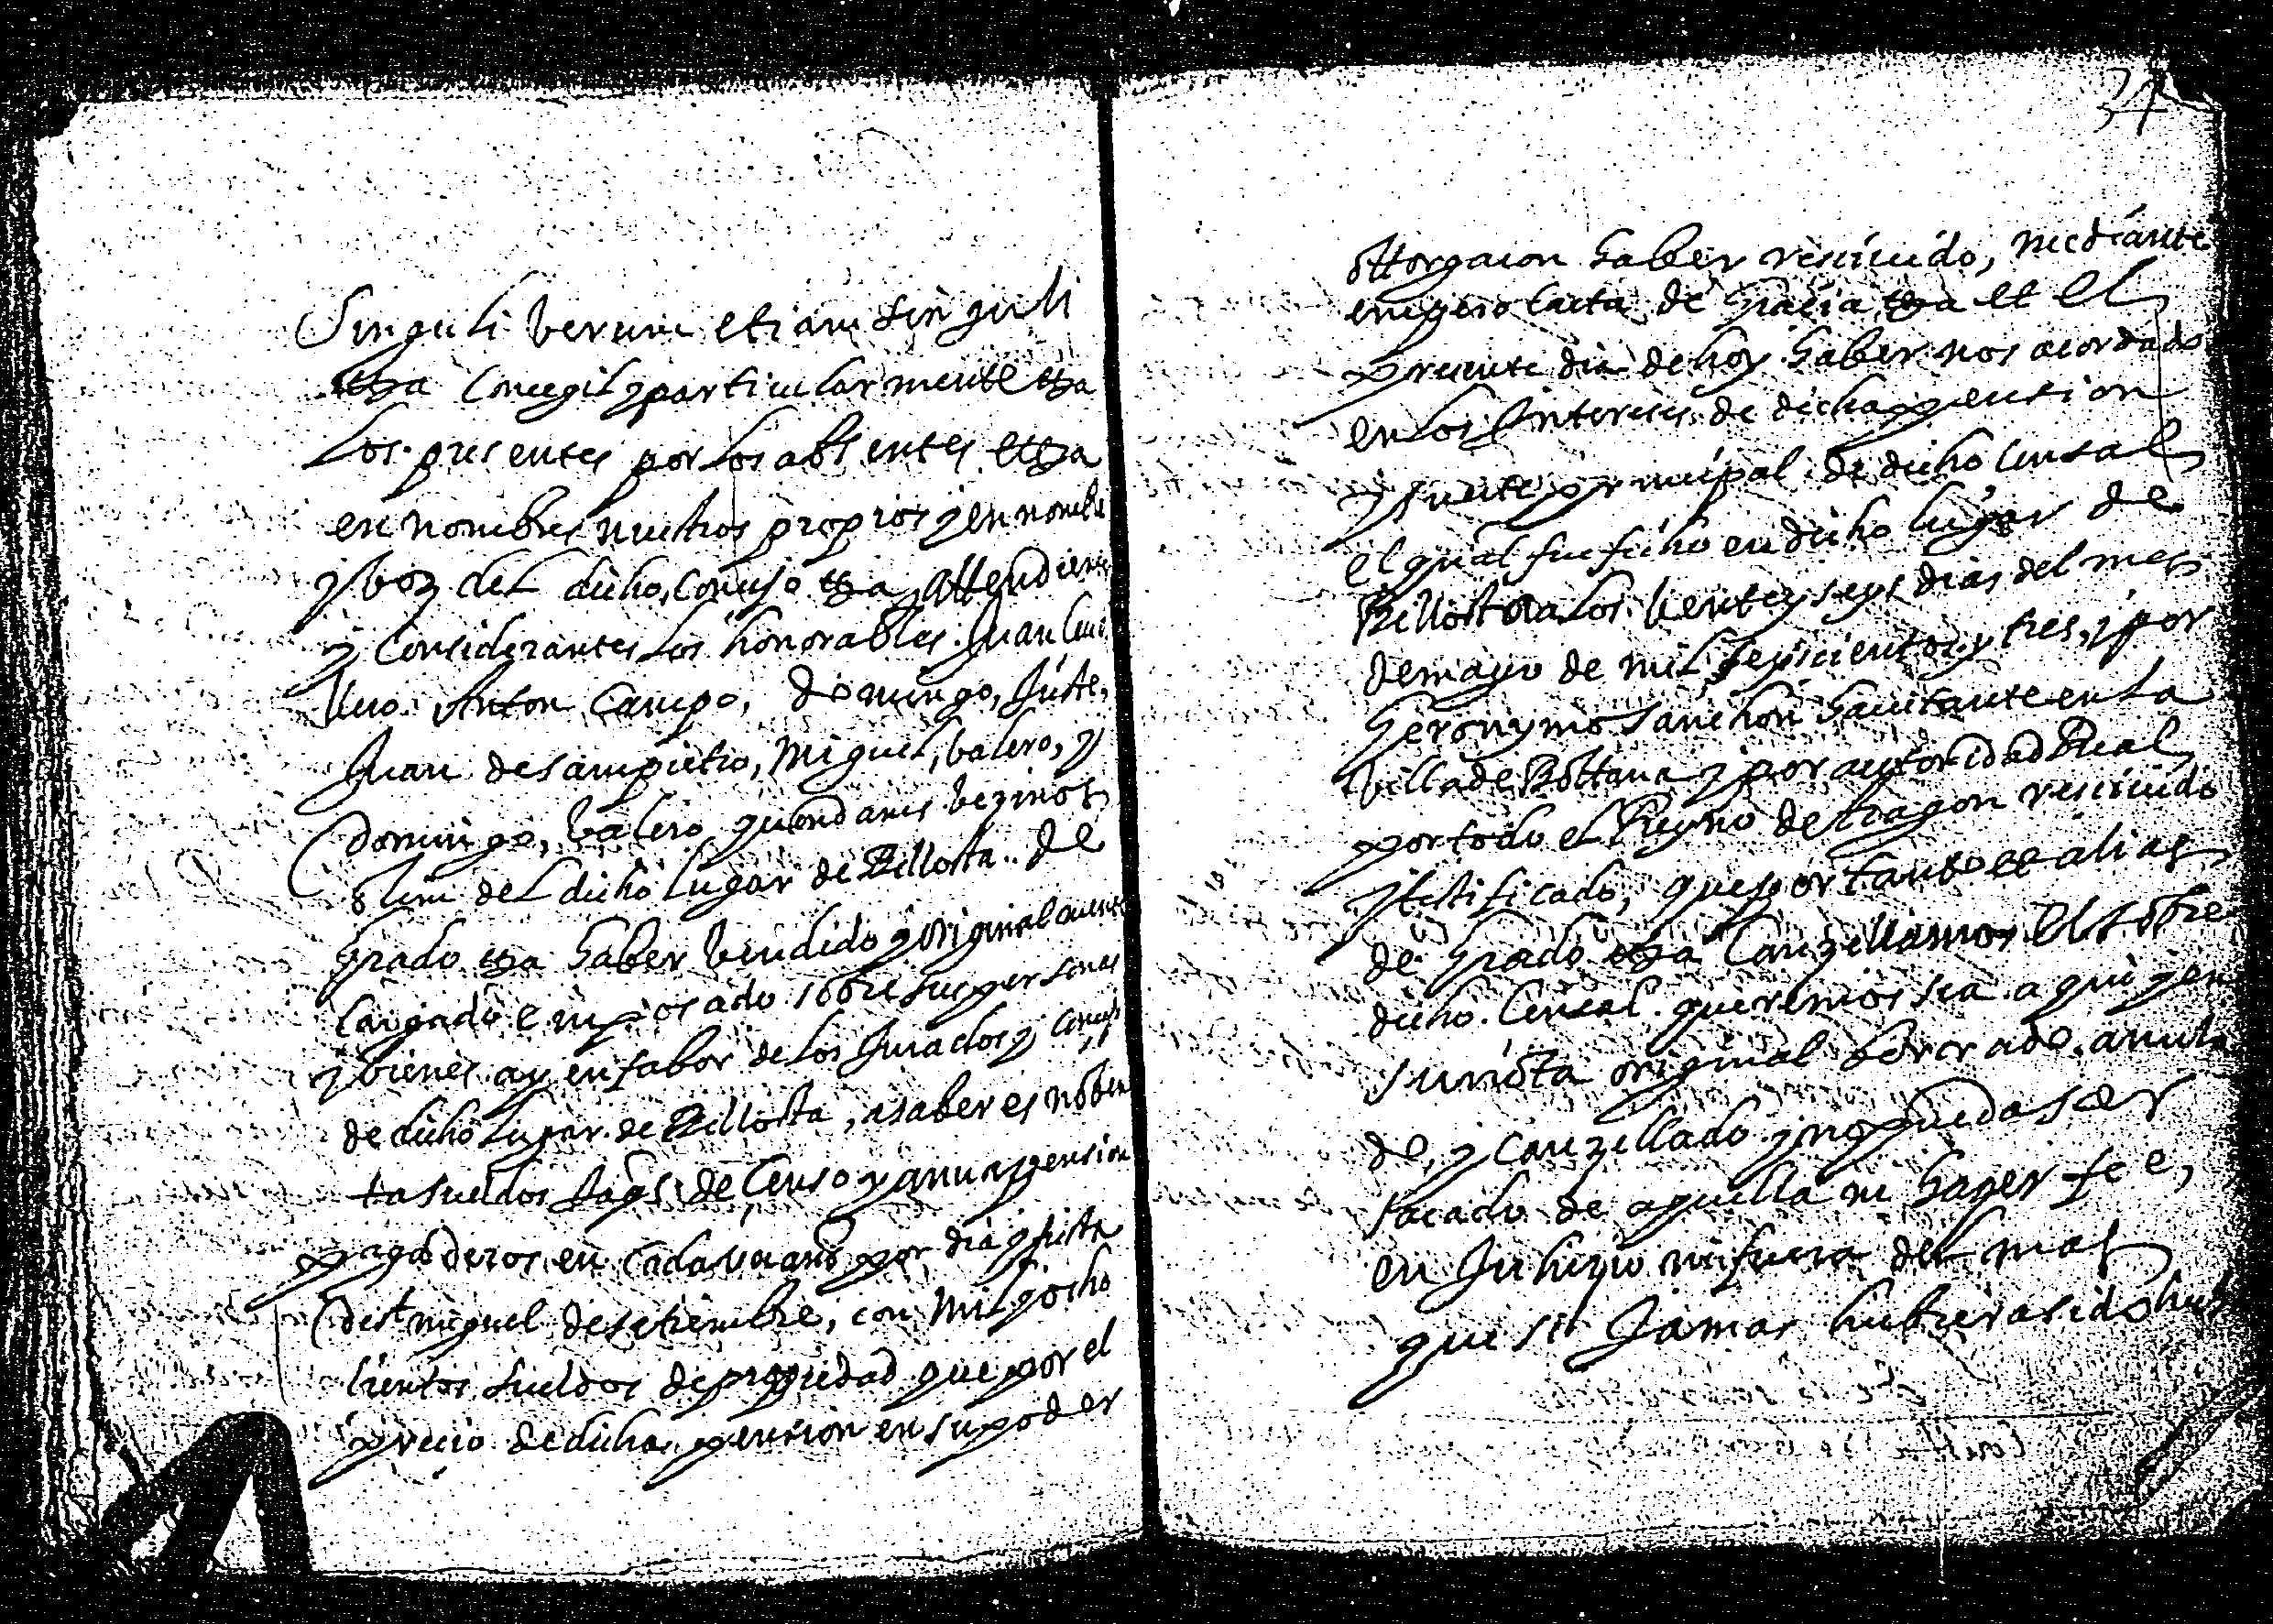 34
Singuli verum etiam singuli
etza Concegil y particularmente etza
Los presentes por los absentes etza
en nombres nuestros propios y en nombre
y boz del dicho, Concejo etza, Attendientes
y Considerantes Los honorables Juan
Anton Campo, Domingo, Juste,
Juan de sampietro, Miguel, balero, y
Domingo, balero quondams bezinos
olim del dicho lugar de Billosta. de
grado etza haber bendido y originalmente
Cargado e inposado sobre sus personas
y bienes ay en fabor de los Jurados y Concejo
de dicho Lugar de Billosta, a saber es noben
ta sueldos Jaqs. de Censo y annua pension
pagaderos en cada un año por dia y fiesta
de st miguel de setiembre, con Mil y ocho
cientos sueldos de propiedad que por el
precio de dicha pension en su poder
ottorgaron haber recivido, mediante
enpero Carta de Gracia etza et el
presente dia de hoy haber nos acordado
en los Intereses de dicha pension
y suerte principal de dicho Censal
el qual fue fecho en dicho lugar de
Billosta a los bente y seys dias del mes
de mayo de mil seyscientos y tres, y por
Geronymo Sanchon havitante en la
villa de Bottana y por autoridad Real
por todo el Reyno de Aragon recivido
y testificado, que por tanto et alias
de grado etza Canzellamos el sobre
dicho. Censal. queremos sea aqui y en
su nota original borrado, anula
do, y Canzellado y no pueda ser
sacado de aquella ni hazer fee,
en Juhizio ni fuera del mas
que si Jamas hubiera sido